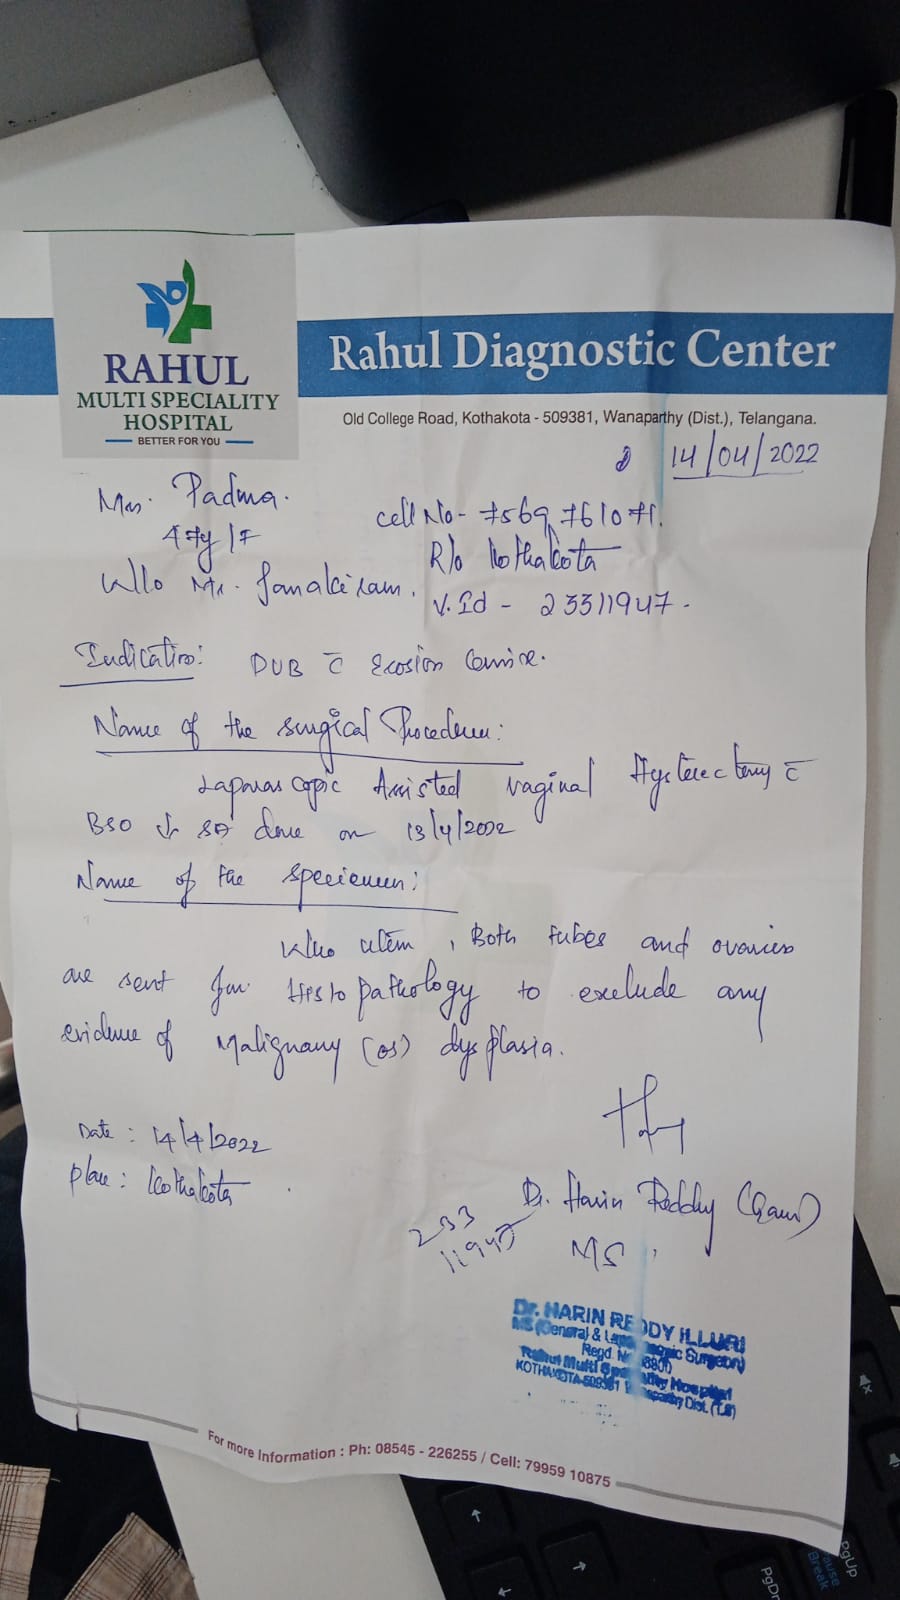 RAHUL
MULTI SPECIALITY
HOSPITAL
BETTER FOR YOU
Rahul Diagnostic Center
Old College Road, Kothakota - 509381, Wanaparthy (Dist.), Telangana.
14/04/2022
Mrs. Padma.
47y/F
cell No - 7569 761071.
R/o Kothakota
W/o Mr. Janakiram.
V.Id - 23311947.
Indication: DUB c̄ Erosion Cervix.
Name of the surgical Procedure:
Laparoscopic Assisted vaginal Hysterectomy c̄
BSO ↓ SA done on 13/4/2022
Name of the specimen:
uterus, Both tubes and ovaries
are sent for Histopathology to exclude any
evidence of Malignany (or) dysplasia.
Date: 14/4/2022
Place: Kothakota
Dr. Harin Reddy
MS
233
11947
Dr. HARIN REDDY ILLURI
MS (General & Laparoscopic Surgeon)
Regd. No
Rahul Multi Speciality Hospital
KOTHAKOTA-509381 Wanaparthy Dist. (T.S)
For more Information : Ph: 08545 - 226255 / Cell: 79959 10875
PgUp
Pause
Break
PgDn